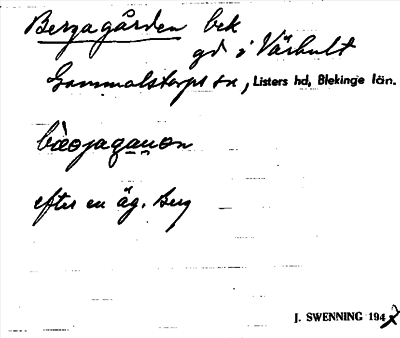 Bergagården bek
gd i Vårhult
Gammalstorps sn, Listers hd, Blekinge län.
efter en äg. Berg
J. SWENNING 1947